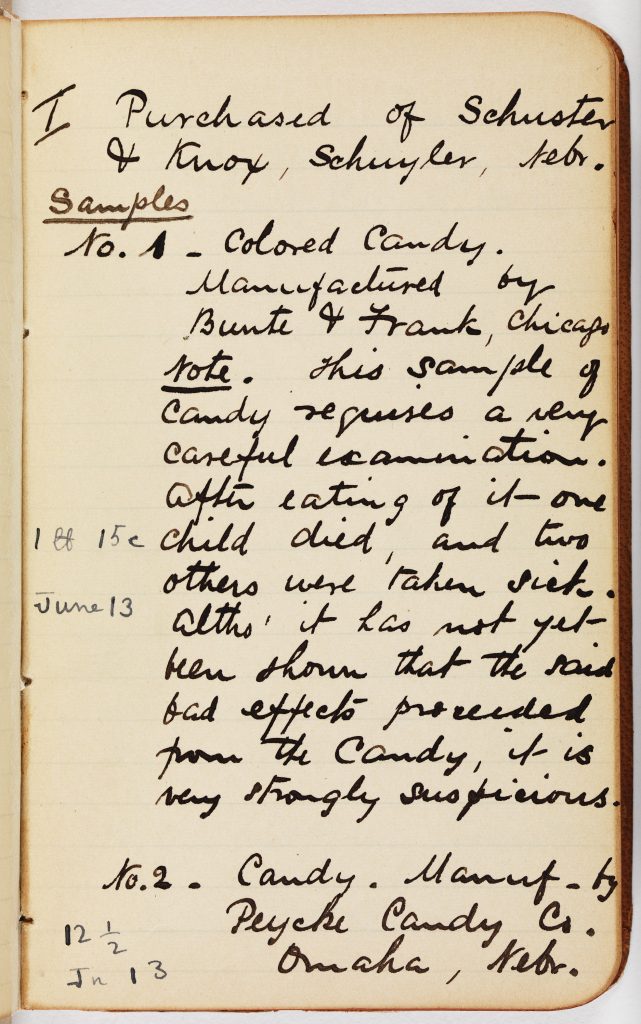 I Purchased of Schuster
& Knox, Schuyler, Nebr.
Samples
No. 1 - Colored Candy.
Manufactured by
Bunte & Frank, Chicago
Note. This sample of
Candy requires a very
careful examination.
After eating of it one
1 lb 15c child died, and two
others were taken sick.
June 13
Altho' it has not yet
been shown that the said
bad effects proceeded
from the Candy, it is
very strongly suspicious.
No. 2 - Candy. Manuf - by
Peycke Candy Co.
12 1/2
Omaha, Nebr.
Jn 13